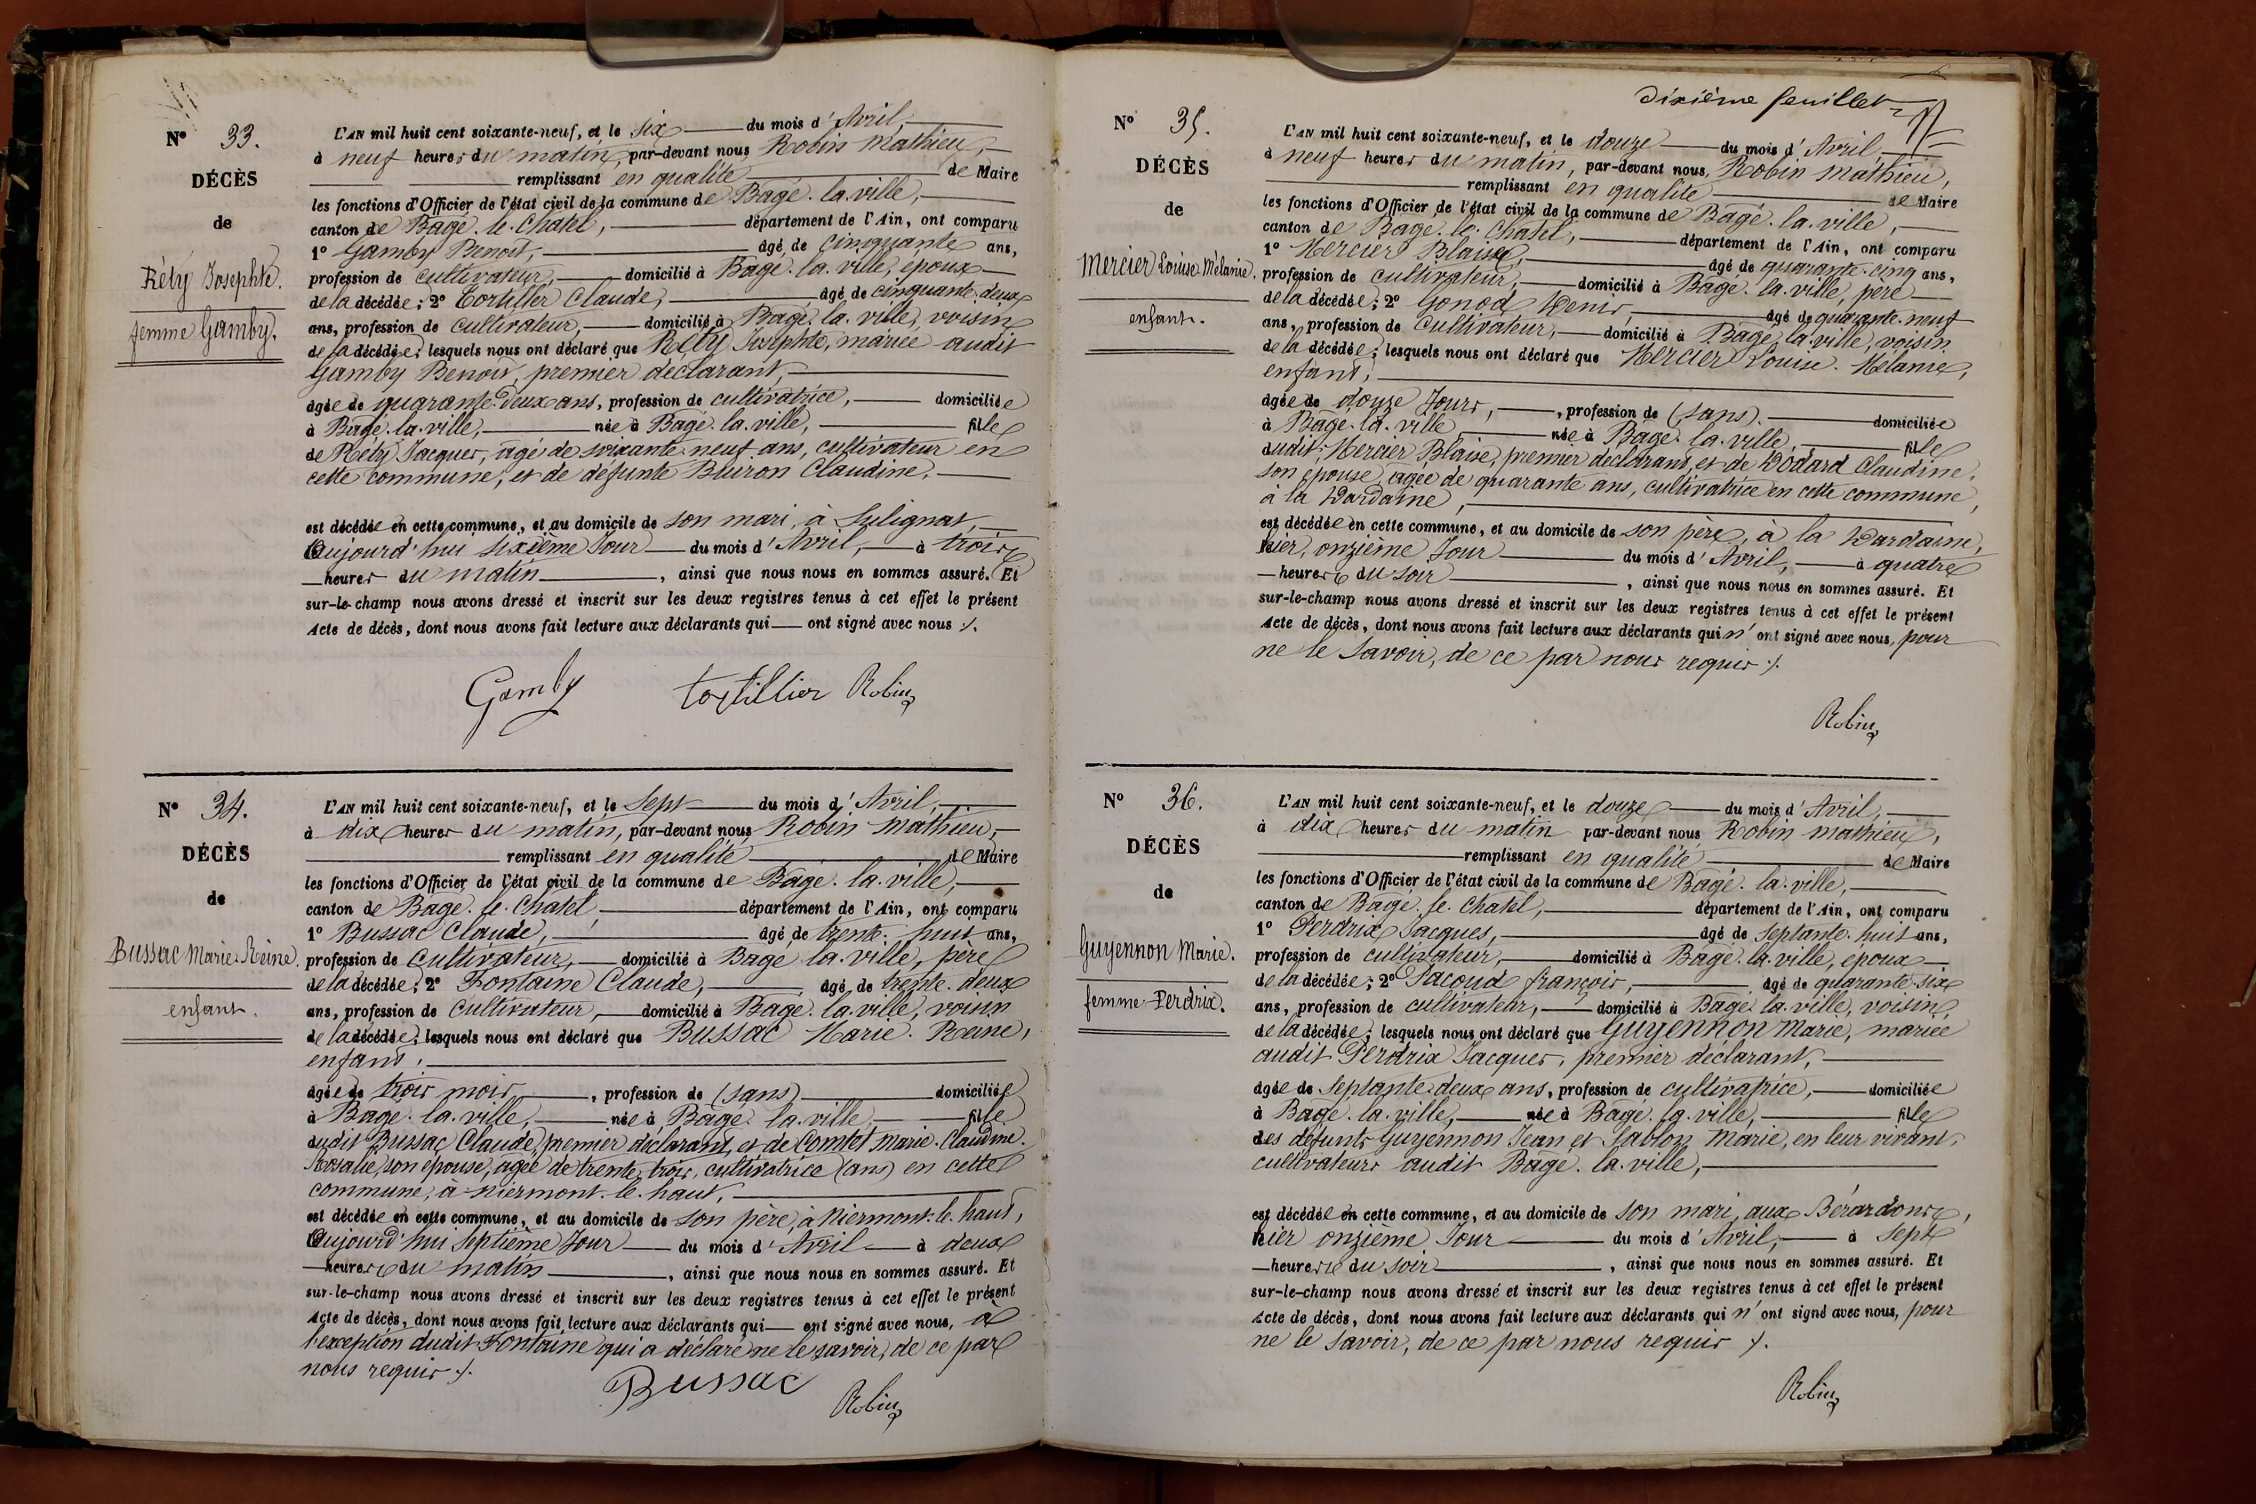 N° 33.
DÉCÈS
de
Réty Josephte.
femme Gamby.
L'AN mil huit cent soixante-neuf, et le six du mois d'Avril,
à neuf heures du matin, par-devant nous Robin Mathieu,
remplissant en qualité de Maire
les fonctions d'Officier de l'état civil de la commune de Bagé-la-ville,
canton de Bagé-le-Chatel, département de l'Ain, ont comparu
1° Gamby Benoit, âgé de cinquante ans,
profession de cultivateur, domicilié à Bagé-la-ville, époux
de la décédée; 2° Tortillier Claude, âgé de cinquante-deux
ans, profession de cultivateur, domicilié à Bagé-la-ville, voisin
de la décédée; lesquels nous ont déclaré que Réty Josephte, mariée audit
Gamby Benoit, premier déclarant,
âgée de quarante-deux ans, profession de cultivatrice, domiciliée
à Bagé-la-ville, née à Bagé-la-ville, fille
de Réty Jacques, âgé de soixante-neuf ans, cultivateur en
cette commune, et de défunte Buiron Claudine,
est décédée en cette commune, et au domicile de son mari, à Sulignat,
Aujourd'hui sixième Jour du mois d'Avril, à trois
heures du matin, ainsi que nous nous en sommes assuré. Et
sur-le-champ nous avons dressé et inscrit sur les deux registres tenus à cet effet le présent
Acte de décès, dont nous avons fait lecture aux déclarants qui ont signé avec nous ./.
Gamby tortillier Robin
N° 34.
DÉCÈS
de
Bussac Marie-Reine.
enfant.
L'AN mil huit cent soixante-neuf, et le sept du mois d'Avril,
à dix heures du matin, par-devant nous Robin Mathieu,
remplissant en qualité de Maire
les fonctions d'Officier de l'état civil de la commune de Bagé-la-ville,
canton de Bagé-le-Chatel, département de l'Ain, ont comparu
1° Bussac Claude, âgé de trente-huit ans,
profession de cultivateur, domicilié à Bagé-la-ville, père
de la décédée; 2° Fontaine Claude, âgé de trente-deux
ans, profession de cultivateur, domicilié à Bagé-la-ville, voisin
de la décédée; lesquels nous ont déclaré que Bussac Marie-Reine,
enfant,
âgée de trois mois, profession de (sans) domiciliée
à Bagé-la-ville, née à Bagé-la-ville, fille
dudit Bussac Claude, premier déclarant, et de Comtet Marie-Claudine-
Rosalie, son épouse, agée de trente-trois, cultivatrice (ans) en cette
commune, à Niermont-le-haut,
est décédée en cette commune, et au domicile de son père, à Niermont-le-haut,
Aujourd'hui septième Jour du mois d'Avril à deux
heures du matin, ainsi que nous nous en sommes assuré. Et
sur-le-champ nous avons dressé et inscrit sur les deux registres tenus à cet effet le présent
Acte de décès, dont nous avons fait lecture aux déclarants qui ont signé avec nous, à
l'exception dudit Fontaine qui a déclaré ne le savoir, de ce par
nous requis ./.
Bussac Robin
Dixième feuillet
N° 35.
DÉCÈS
de
Mercier Louise Mélanie.
enfant.
L'AN mil huit cent soixante-neuf, et le douze du mois d'Avril
à neuf heures du matin, par-devant nous, Robin Mathieu,
remplissant en qualité de Maire
les fonctions d'Officier de l'état civil de la commune de Bagé-la-ville,
canton de Bagé-le-Chatel, département de l'Ain, ont comparu
1° Mercier Blaise, âgé de quarante-cinq ans,
profession de cultivateur, domicilié à Bagé-la-ville, père
de la décédée; 2° Gonod Denis, âgé de quarante-neuf
ans, profession de Cultivateur, domicilié à Bagé-la-ville, voisin
de la décédée; lesquels nous ont déclaré que Mercier Louise-Mélanie,
enfant,
âgée de douze Jours, profession de (sans). domiciliée
à Bagé-la-ville, née à Bagé-la-ville, fille
dudit Mercier Blaise, premier déclarant, et de Dodard Claudine,
son épouse, agée de quarante ans, cultivatrice en cette commune,
à la Dardaine,
est décédée en cette commune, et au domicile de son père, à la Dardaine,
hier, onzième Jour du mois d'Avril, à quatre
heures du soir, ainsi que nous nous en sommes assuré. Et
sur-le-champ nous avons dressé et inscrit sur les deux registres tenus à cet effet le présent
Acte de décès, dont nous avons fait lecture aux déclarants qui n'ont signé avec nous, pour
ne le savoir, de ce par nous requis ./.
Robin
N° 36.
DÉCÈS
de
Guyennon Marie.
femme Perdrix.
L'AN mil huit cent soixante-neuf, et le douze du mois d'Avril,
à dix heures du matin par-devant nous Robin Mathieu,
remplissant en qualité de Maire
les fonctions d'Officier de l'état civil de la commune de Bagé-la-ville,
canton de Bagé-le-Chatel, département de l'Ain, ont comparu
1° Perdrix Jacques, âgé de septante-huit ans,
profession de cultivateur, domicilié à Bagé-la-ville, époux
de la décédée; 2° Pacoud françois, âgé de quarante-six
ans, profession de cultivateur, domicilié à Bagé-la-ville, voisin
de la décédée; lesquels nous ont déclaré que Guyennon Marie, mariée
audit Perdrix Jacques, premier déclarant,
âgée de septante-deux ans, profession de cultivatrice, domiciliée
à Bagé-la-ville, née à Bagé-la-ville, fille
des défunts Guyennon Jean et Sablon Marie, en leur vivant,
cultivateurs audit Bagé-la-ville,
est décédée en cette commune, et au domicile de son mari, aux Bérardons,
hier onzième Jour du mois d'Avril, à sept
heures du soir, ainsi que nous nous en sommes assuré. Et
sur-le-champ nous avons dressé et inscrit sur les deux registres tenus à cet effet le présent
Acte de décès, dont nous avons fait lecture aux déclarants qui n'ont signé avec nous, pour
ne le savoir, de ce par nous requis ./.
Robin